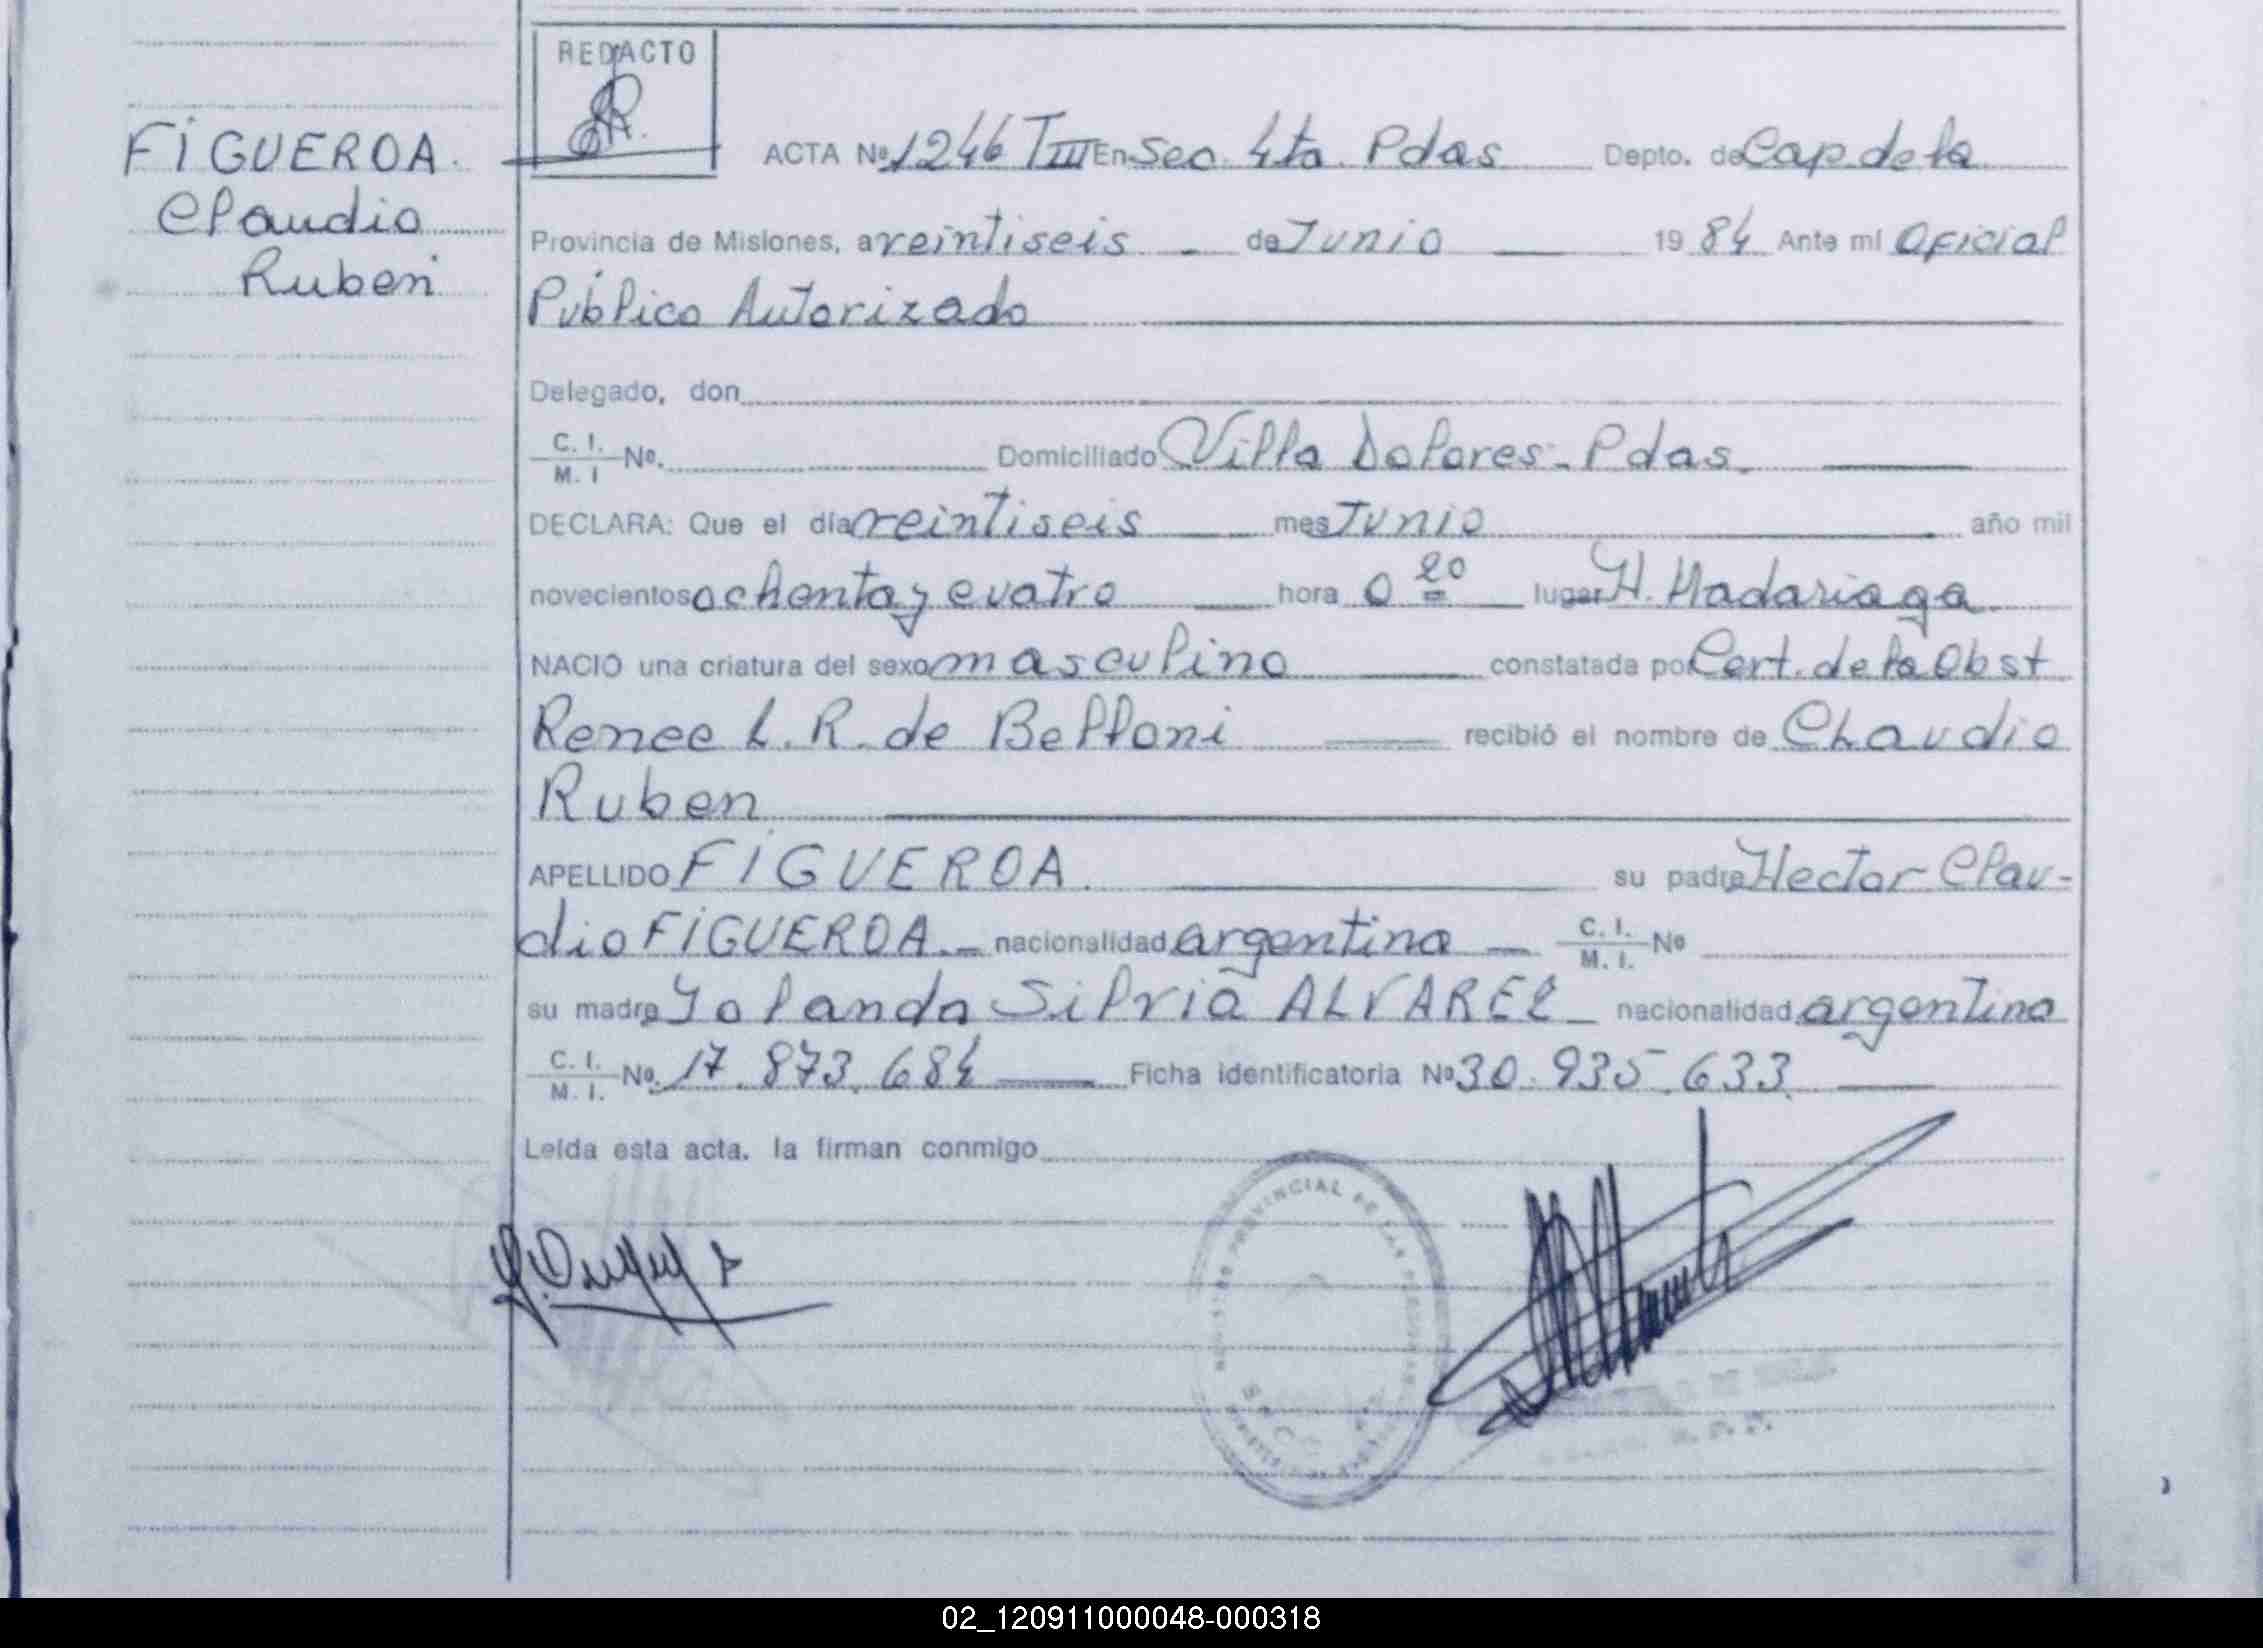 REDACTO
FIGUEROA.
Claudio
Ruben
ACTA Nº 1246 TIII En Sec. 4ta. Pdas Depto. de Cap. de la
Provincia de Misiones, a veintiseis de Junio 19 84 Ante mí Oficial
Público Autorizado
Delegado, don
C. I. M. I Nº. Domiciliado Villa Dolores - Pdas.
DECLARA: Que el día veintiseis mes Junio año mil
novecientos ochenta y cuatro hora 0 20 lugar H. Madariaga
NACIO una criatura del sexo masculino constatada por Cert. de la Obst
Renee L. R. de Belloni recibió el nombre de Claudio
Ruben
APELLIDO FIGUEROA. su padre Hector Clau-
dio FIGUEROA. nacionalidad argentina C. I. M. I. Nº
su madre Yolanda Silvia ALVAREZ nacionalidad argentina
C. I. M. I. Nº. 17.873.684 Ficha identificatoria Nº 30.935.633
Leída esta acta, la firman conmigo
02_120911000048-000318